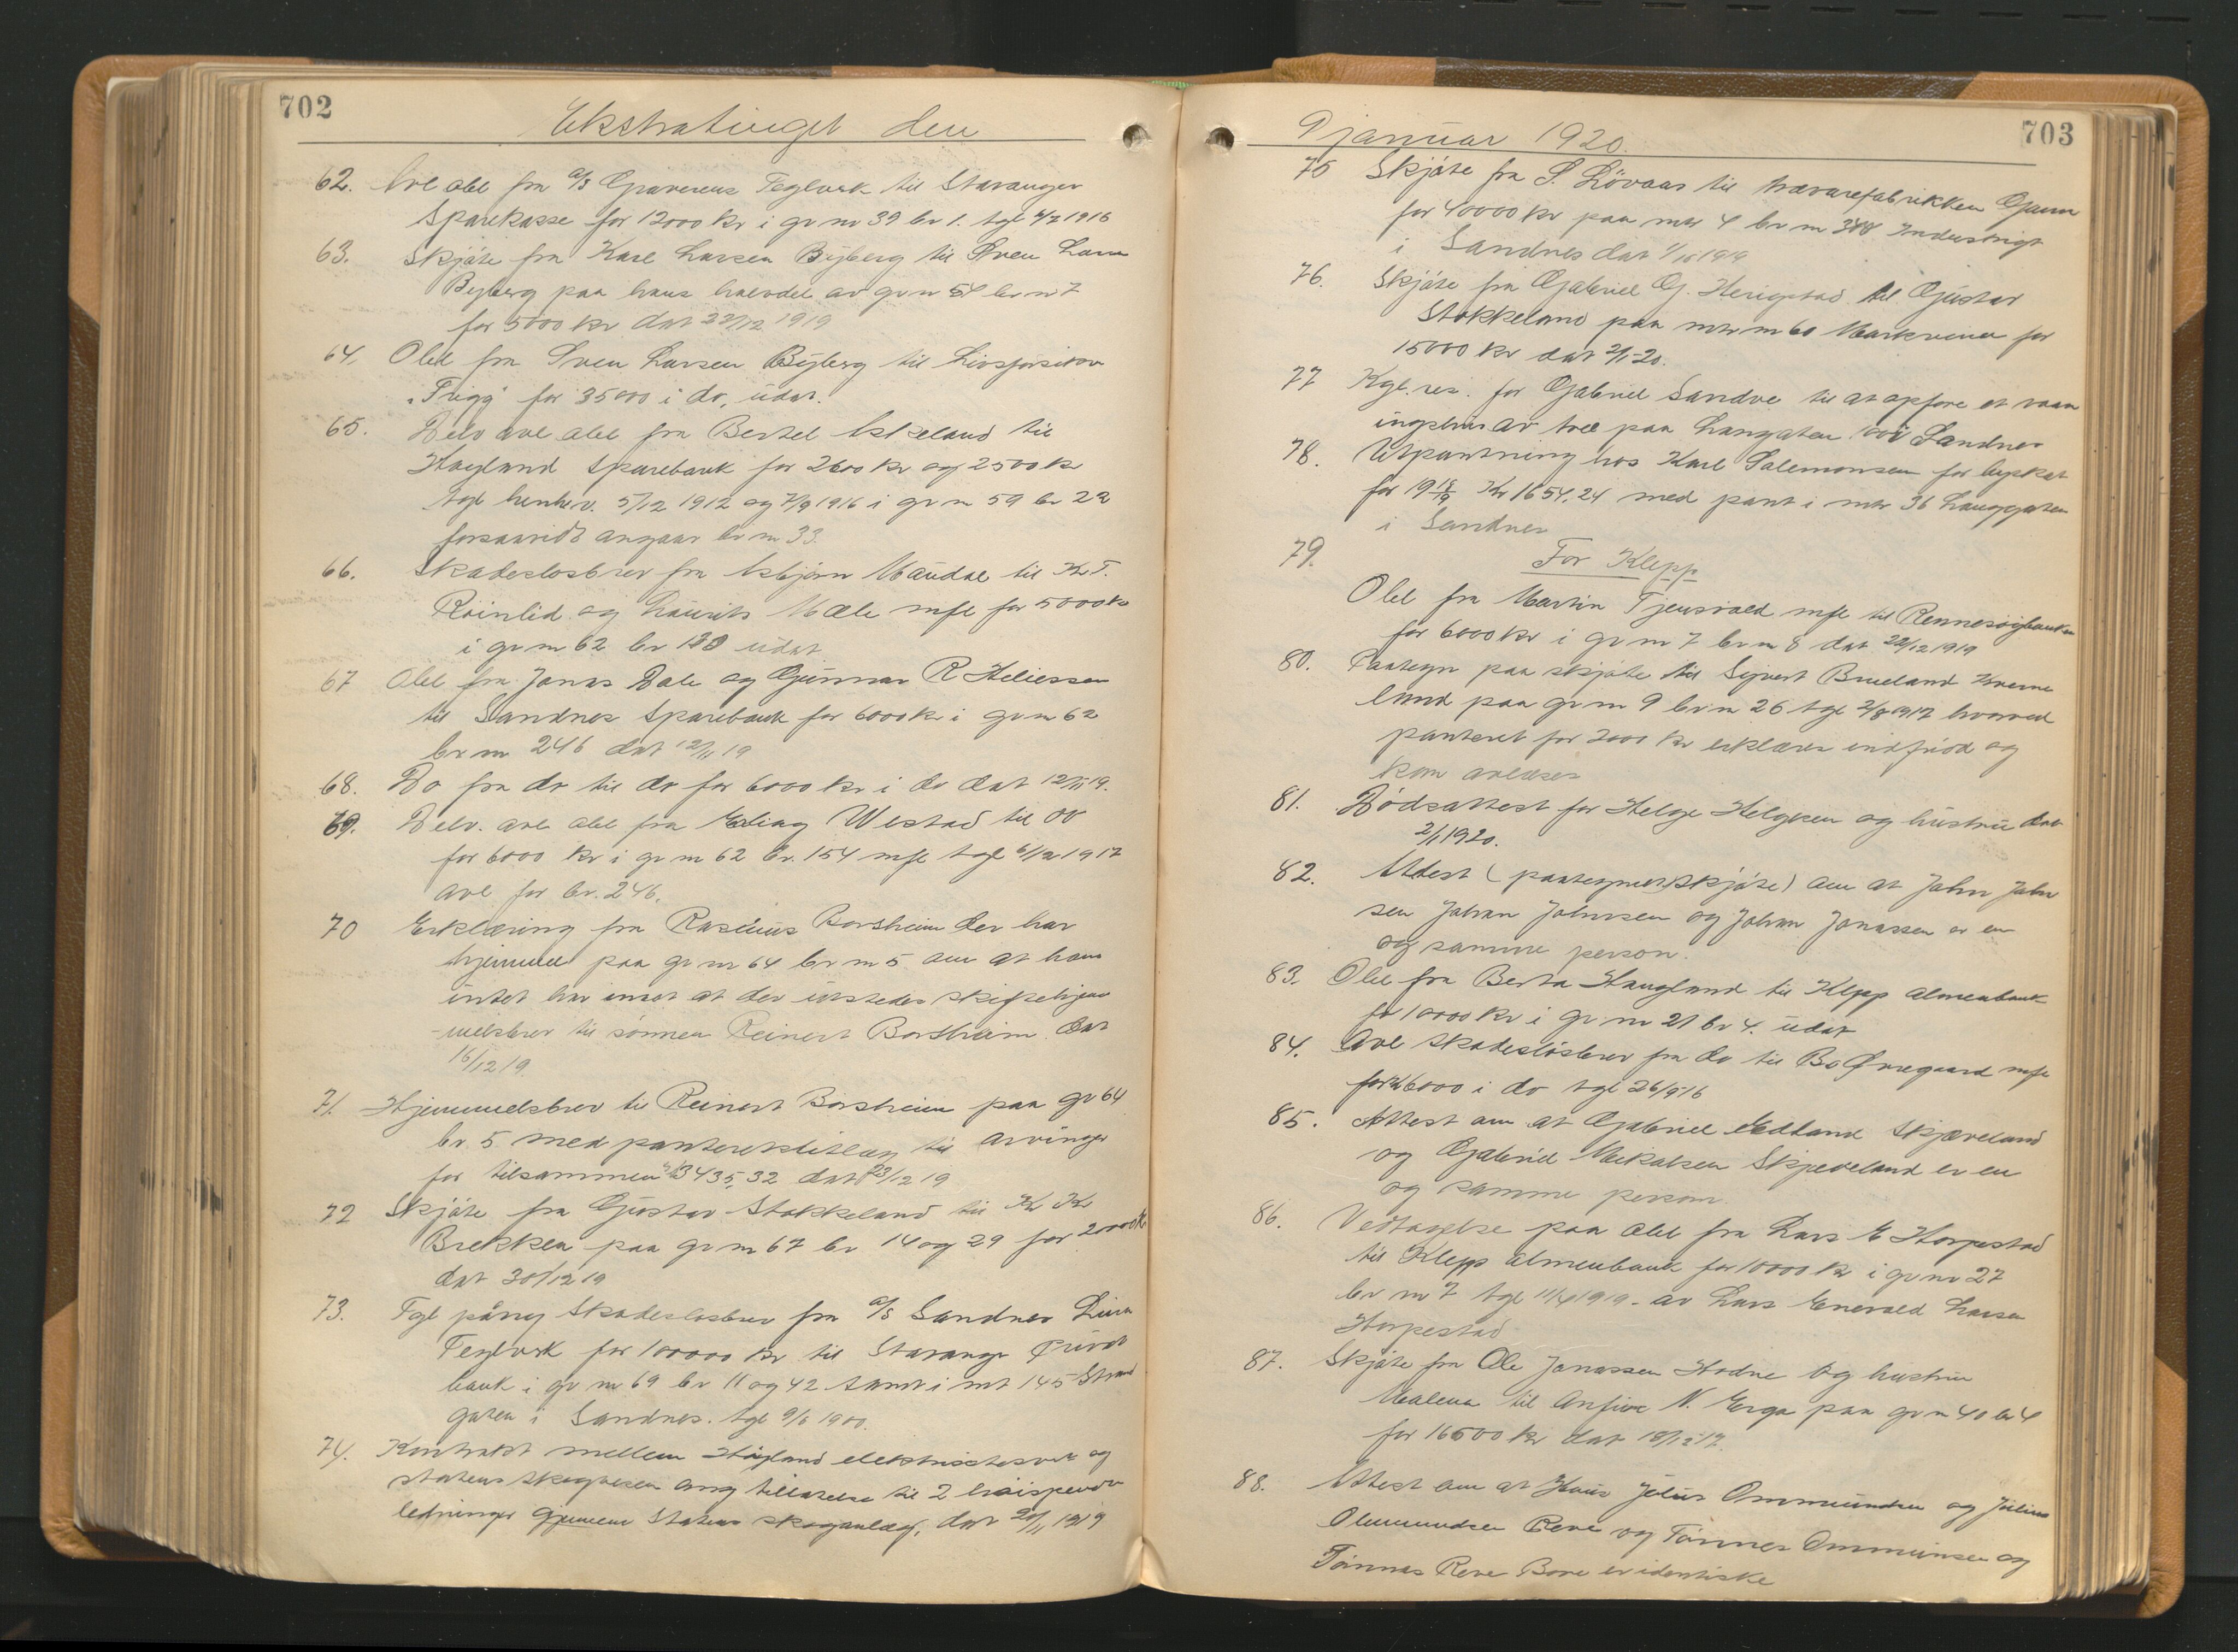 702
Ekstratinget den
62. Avl obl fra A/S Graverens Teglverk til Stavanger
Sparekasse for 12000 kr i gr nr 39 br 1. tgl 4/7 1916
63. Skjøte fra Karl Larsen Byberg til Sven Larsen
Byberg paa hans halvdel av gr nr 54 br nr 7
for 5000 kr dat 22/12 1919
64. Obl fra Sven Larsen Byberg til Livsforsikr
"Trigg" for 35000 i do, udat.
65. Delv avl obl fra Bertel Askeland til
Høyland Sparebank for 2600 kr og 2500 kr
tgl henhv. 5/12 1912 og 7/9 1916 i gr nr 59 br 22
forsaavidt angaar br nr 33.
66. Skadesløsbrev fra Asbjørn Maudal til Kr T.
Røinlid og Laurits Mæle mfl for 5000 kr
i gr nr 62 br 180 udat
67 Obl fra Jonas Dale og Gunnar R Heliessen
til Sandnes Sparebank for 6000 kr i gr nr 62
br nr 246 dat 12/11 19
68. Do fra do til do for 6000 kr i do dat 12/11 19.
69. Delv. avl obl fra Eling Vestad til do
for 6000 kr i gr nr 62 br. 154 mfl tgl 6/12 1917
avl for br. 246.
70 Erklæring fra Rasmus Borsheim der har
hjemmel paa gr nr 64 br nr 5 om at han
intet har imot at der utstedes skiftehjem
melsbrev til sønnen Reinert Borsheim. Dat
16/12 19
71. Hjemmelsbrev til Reinert Borsheim paa gr 64
br. 5 med panteretsutlæg til arvinger
for tilsammen kr 3435,32 dat 23/12 19
72 Skjøte fra Gustav Stokkeland til Kr Kr
Brekken paa gr nr 67 br 14 og 29 for 20000 kr
dat 30/12 19
73. Tgl påny Skadesløsbrev fra A/S Sandnes Lura
Teglverk for 100000 kr til Stavanger Privat
bank i gr nr 69 br 11 og 42 samt i mt 145 Strand
gaten i Sandnes. tgl 9/6 1900.
74. Kontrakt mellem Høyland elektrisitesverk og
statens skogvesen ang tillatelse til 2 høispendte
ledninger gjennem Statens skoganlæg, dat 20/11 1919
9 januar 1920.
703
75 Skjøte fra S. Løvaas til trævarefabrikken Gann
for 40000 kr paa mtr 4 br nr 348 Industrigt
i Sandnes dat 1/10 1919
76. Skjøte fra Gabriel G. Herigstad til Gustav
Stokkeland paa mtr nr 60 Markveien for
15000 kr dat 2/1-20.
77 Kgl. res. for Gabriel Sandve til at opføre et vaan
ingshus av træ paa Langgaten 100 i Sandnes
78. Utpantning hos Karl Salomonsen for byskat
for 19 18/19 Kr 1654,24 med pant i mtr 36 Langgaten
i Sandnes
79. For Klepp
Obl fra Martin Tjensvold mfl til Rennesøybanken
for 6000 kr i gr nr 7 br nr 8 dat 22/12 1919
80. Paategn paa skjøte til Sivert Brueland Kverne
land paa gr nr 9 br nr 26 tgl 2/8 1917 hvorved
panteret for 3000 kr erklæres indfriod og
kan avlæses
81. Dødsattest for Helge Helgesen og hustru dat
2/1 1920.
82. Attest (paategnet skjøte) om at John John
sen Johan Johnsen og Johan Jonassen er en
og samme person.
83. Obl fra Berta Haugland til Klepp almenbank
for 10000 kr i gr nr 21 br 4. udat
84. Avl skadesløsbrev fra do til Bo Øvregaard mfl
for kr 6000 i do tgl 26/9-16
85. Attest om at Gabriel Edland Skjæveland
og Gabriel Mikalsen Skjæveland er en
og samme person
86. Vedtagelse paa obl fra Lars E Horpestad
til Klepp almenbank for 10000 kr i gr nr 27
br nr 7 tgl 11/4 1919 - av Lars Enevald Larsen
Horpestad
87. Skjøte fra Ole Jonassen Hodne og hustru
Malena til Anfinn N. Erga paa gr nr 40 br 4
for 16500 kr dat 18/12 17.
88. Attest om at Hans Julius Ommundsen og Julius
Ommundsen Reve og Tønnes Ommunsen og
Tønnes Reve Bore er identiske